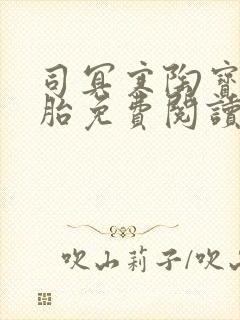 司冥寒陶寶
胎免費閱讀
吹山莉子/吹山